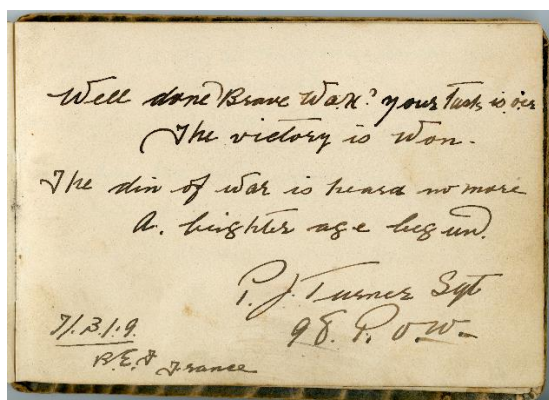 Well done Brave your Task is o'er
The victory is Won.
The din of war is heard no more
A. brighter age begun.
P. J. Turner Sgt
98. P. O. W.
7/.3/.1.9.
B.E.F France